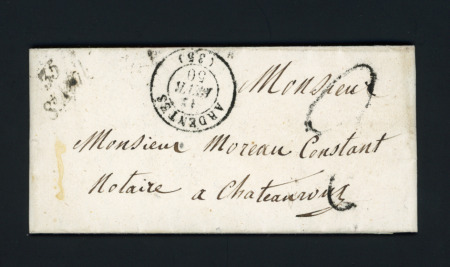 Monsieur
Monsieur Moreau Constant
Notaire a Chateauroux
ARDENTES
50
(35)
35